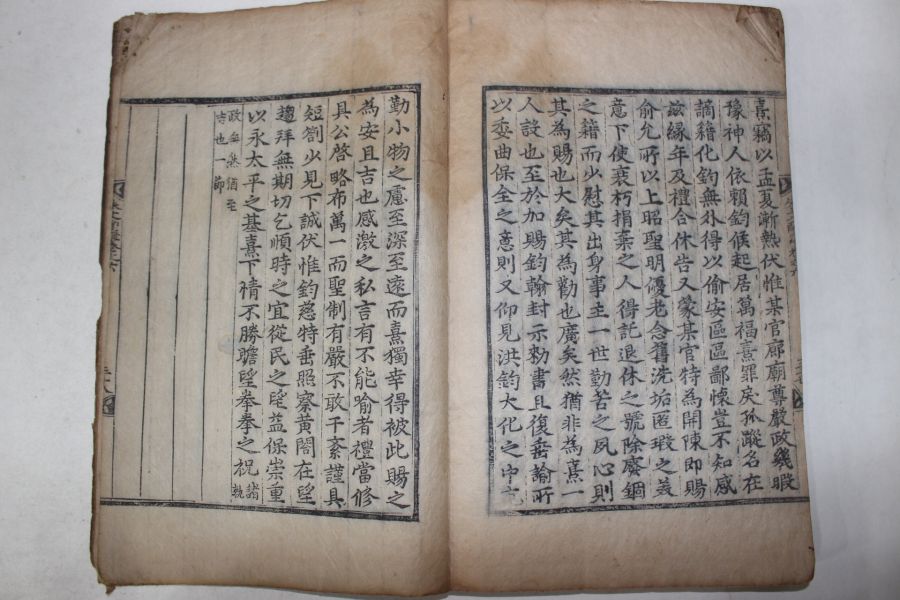 熹竊以孟夏漸熱伏惟某官廊廟尊嚴政幾暇
豫神人依賴鈞候起居萬福熹罪戾孤蹤名在
謫籍化鈞無外得以偷安區區鄙懷豈不知感
玆緣年及禮合休告又蒙某官特為開陳即賜
俞允所以上昭聖明優老念舊洗垢匿瑕之美
意下使衰朽捐棄之人得託退休之號除廢錮
之籍而少慰其出身事主一世勤苦之夙心則
其為賜也大矣其為勸也廣矣然猶非為熹一
人設也至於加賜鈞翰封示勑書且復垂諭所
以委曲保全之意則又仰見洪鈞大化之中
勤小物之慮至深至遠而熹獨幸得被此賜之
為安且吉也感激之私言有不能喻者禮當修
具公啓略布萬一而聖制有嚴不敢干紊謹具
短劄少見下誠伏惟鈞慈特垂照察黃閤在望
趨拜無期切乞順時之宜從民之望益保崇重
以永太平之基熹下情不勝瞻望拳拳之祝 諸執
政無無猶至
吉也一節
二十八